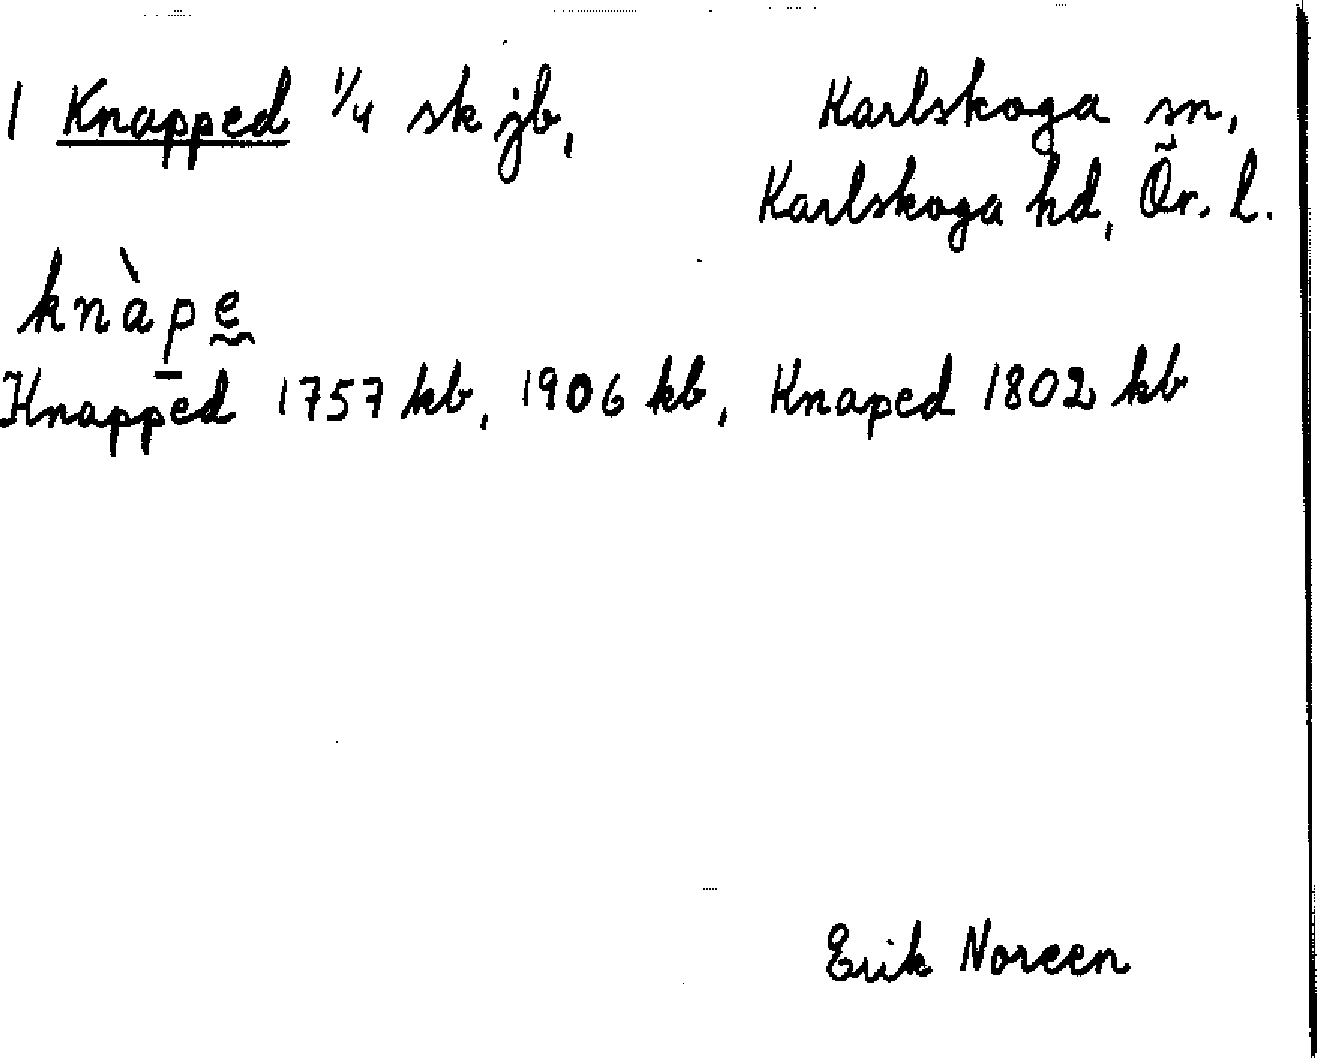 1 Knapped 1/4 sk jb, Karlskoga sn,
Karlskoga hd, Ör. l.
knàpe
Knapped 1757 kb, 1906 kb, Knaped 1802 kb
Erik Noreen